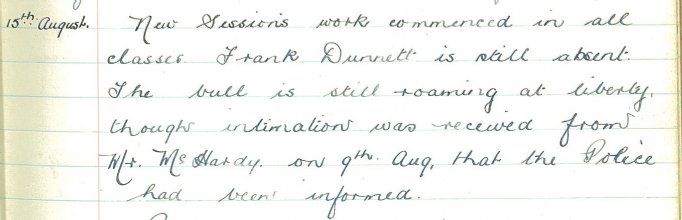 15th August. New Session's work commenced in all
classes. Frank Dunnett is still absent.
The bull is still roaming at liberty,
though intimation was received from
Mr. McHardy. on 9th Aug, that the Police
had been informed.